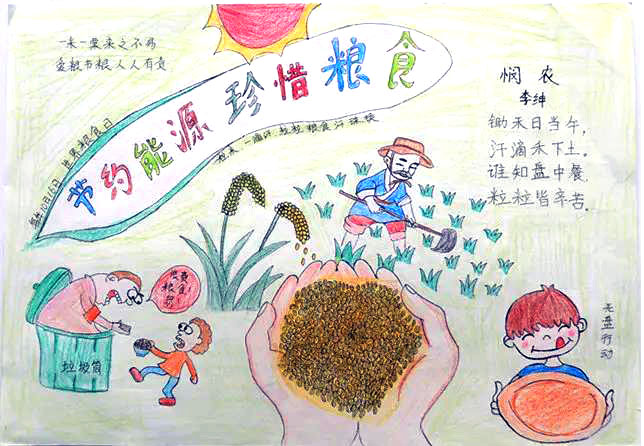 一米一粟来之不易
爱粮节粮人人有责
节约能源珍惜粮食
每年10月16日世界粮食日
一滴汗,粒粒粮食汗珠换
悯农
李绅
锄禾日当午,
汗滴禾下土。
谁知盘中餐,
粒粒皆辛苦.
垃圾筒
光盘行动